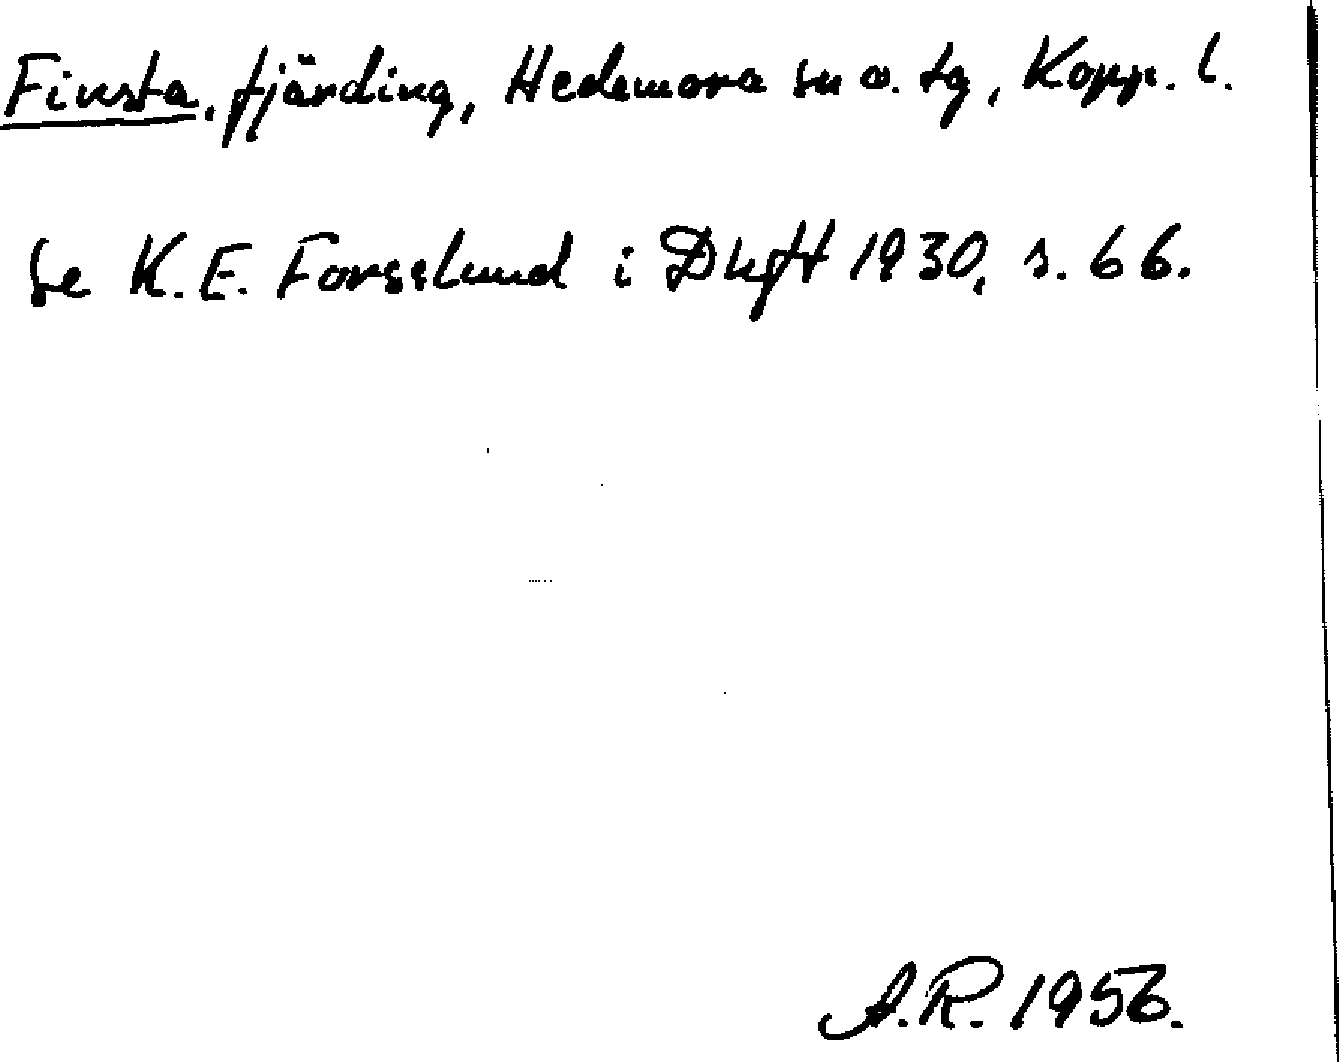 Finsta, fjärding, Hedemora sn o. tg, Kopp. l.
Se K.E. Forsslund i Dhft 1930, s. 66.
A.R. 1956.